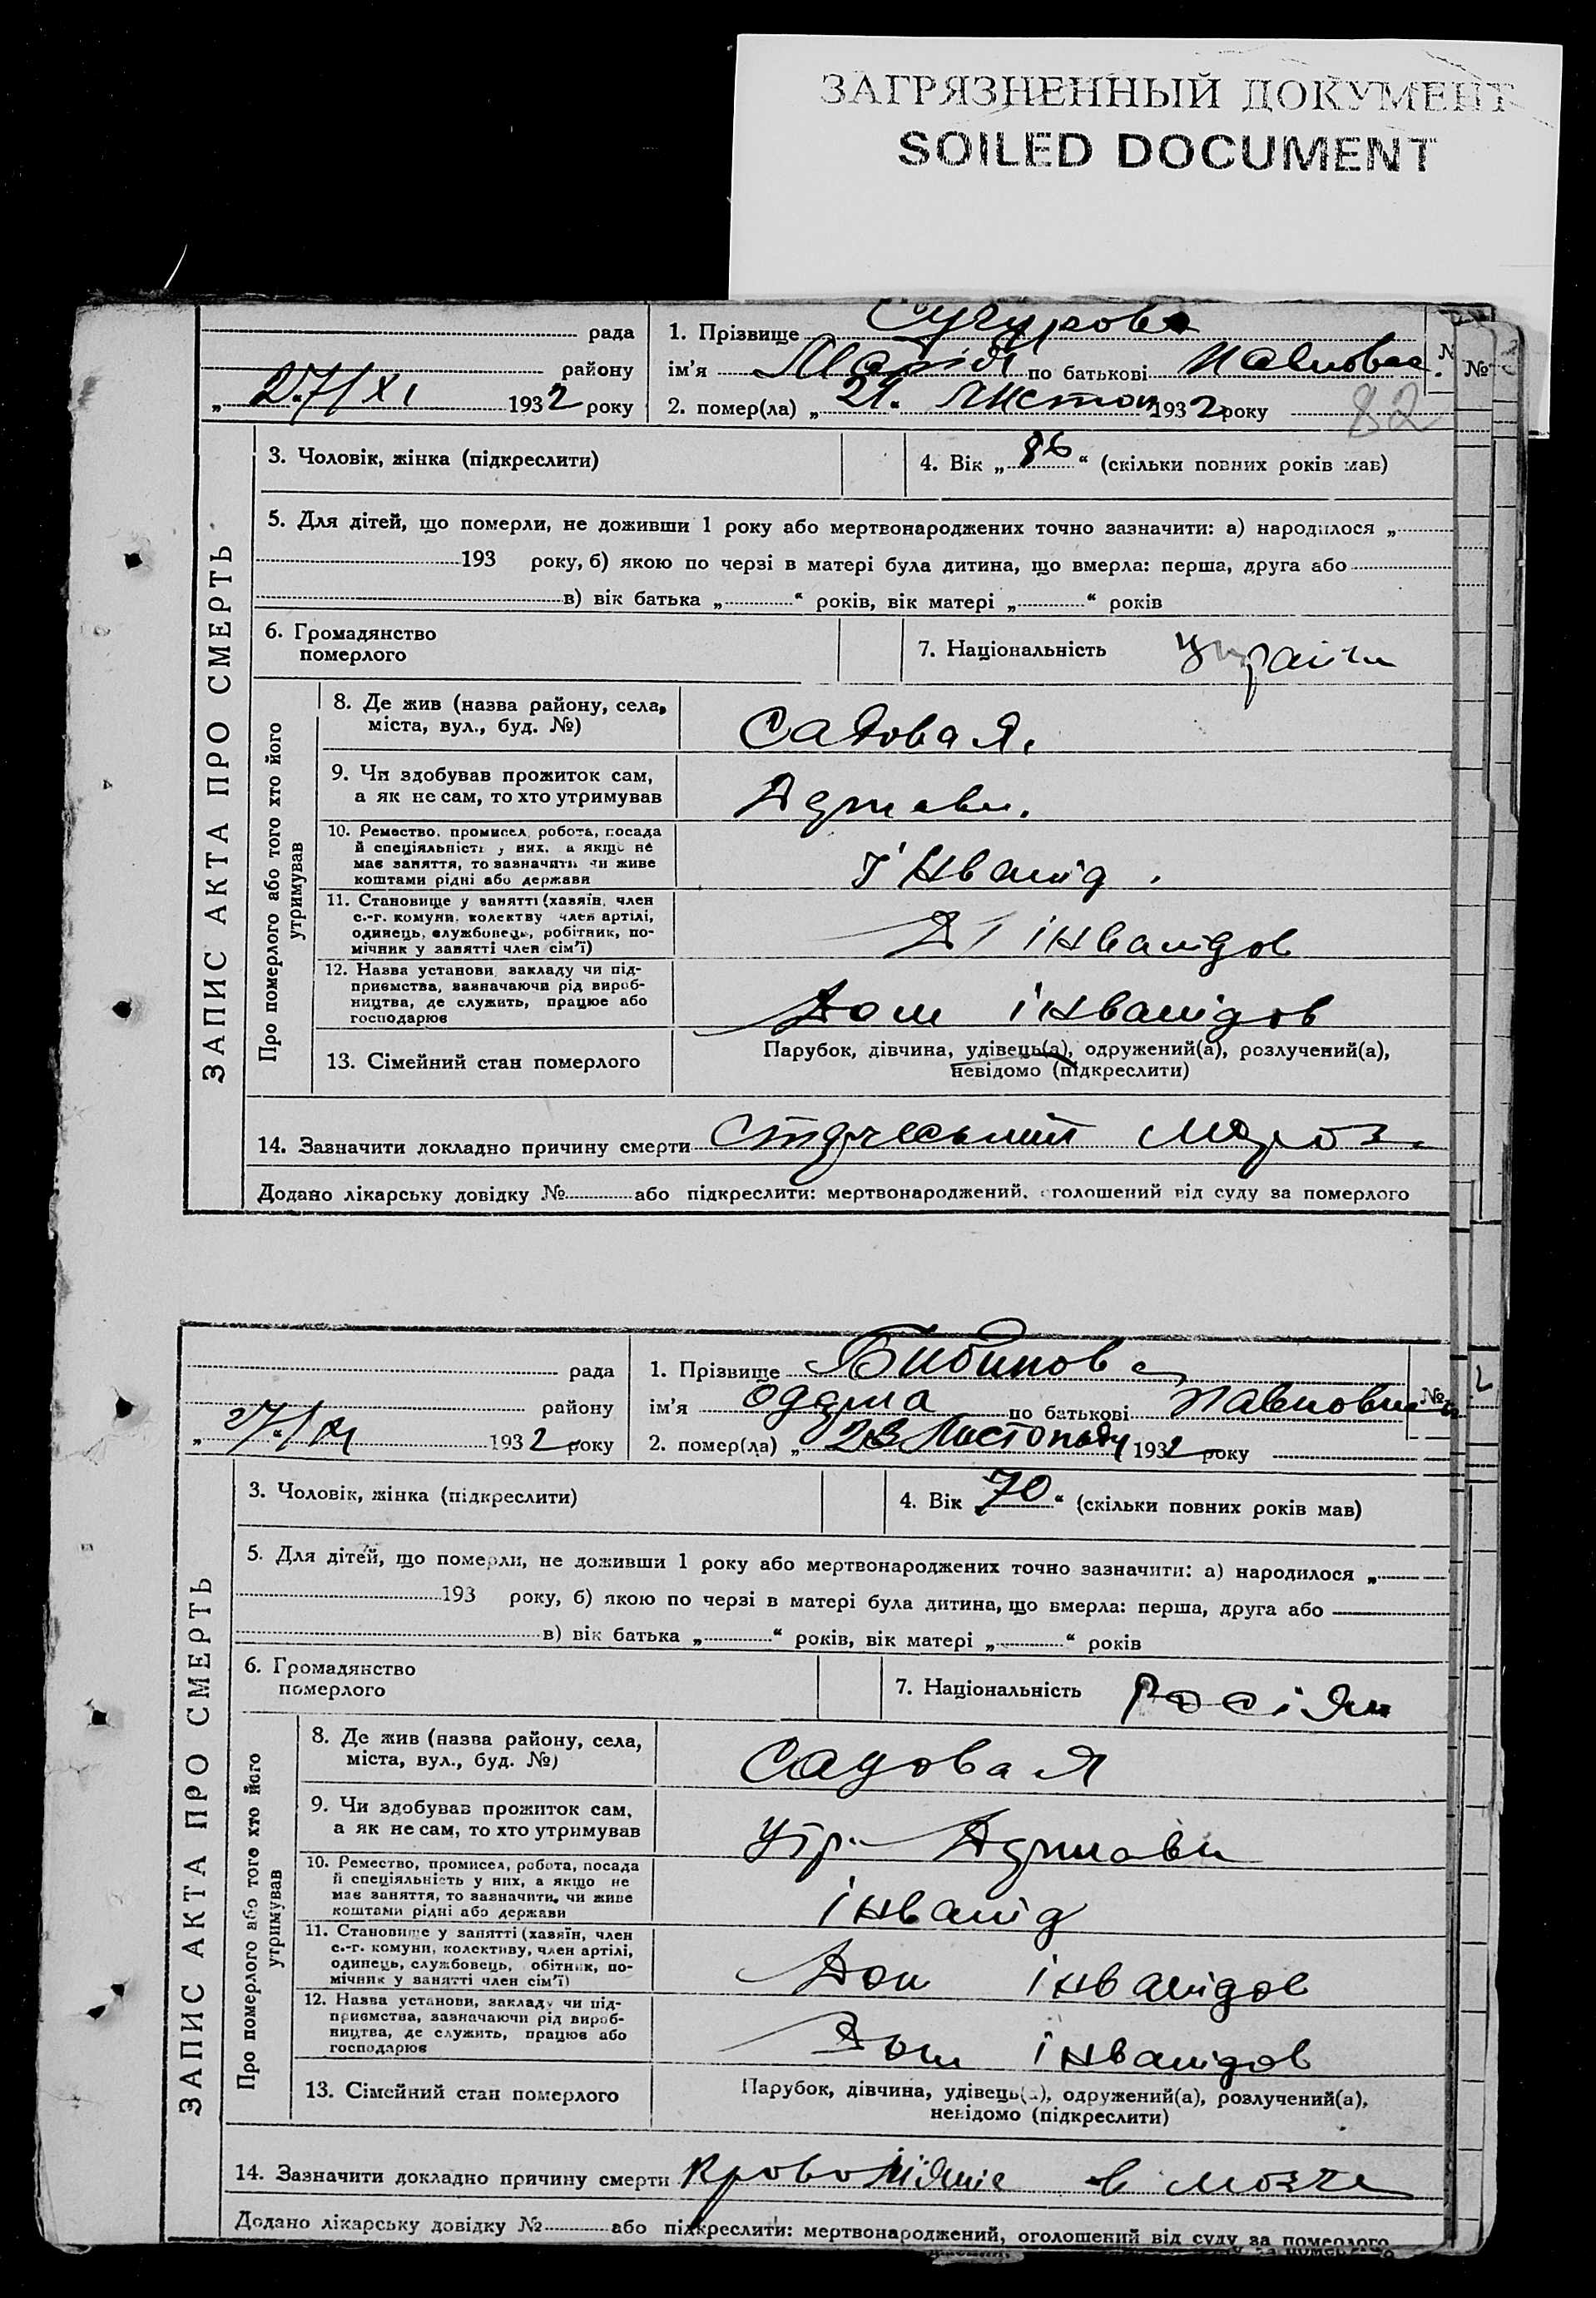 ЗАГРЯЗНЕННЫЙ ДОКУМЕНТ
SOILED DOCUMENT
рада
1. Прізвище
№
району
ім'я Марія по батькові Павловна
№
„ 27/XI 1932 року
2. помер(ла) „ 24. Листоп 1932 року
82
ЗАПИС АКТА ПРО СМЕРТЬ
3. Чоловік, жінка (підкреслити)
4. Вік „ 86 “ (скільки повних років мав)
5. Для дітей, що померли, не доживши 1 року або мертвонароджених точно зазначити: а) народилося „
193 року, б) якою по черзі в матері була дитина, що вмерла: перша, друга або
в) вік батька „ “ років, вік матері „ “ років
6. Громадянство
померлого
7. Національність
Україн
Про померлого або того хто його
утримував
8. Де жив (назва району, села,
міста, вул., буд. №)
Садовая.
9. Чи здобував прожиток сам,
а як не сам, то хто утримував
Держави.
10. Ремество, промисел, робота, посада
й спеціяльність у них, а якщо не
має заняття, то зазначити чи живе
коштами рідні або держави
інвалід.
11. Становище у занятті (хазяїн, член
с.-г. комуни, колектву член артілі,
одинець, службовець, робітник, по-
мічник у занятті член сім'ї)
Д/інвалідов
12. Назва установи, закладу чи під-
приємства, зазначаючи рід вироб-
ництва, де служить, працює або
господарює
Дом інвалідов
13. Сімейний стан померлого
Парубок, дівчина, удівець(а), одружений(а), розлучений(а),
невідомо (підкреслити)
14. Зазначити докладно причину смерти
Додано лікарську довідку № або підкреслити: мертвонароджений, оголошений від суду за померлого
рада
1. Прізвище Бибикова
району
ім'я по батькові Павловна
№
„ 27/XI 1932 року
2. помер(ла) „ 23 Листопаду 1932 року
ЗАПИС АКТА ПРО СМЕРТЬ
3. Чоловік, жінка (підкреслити)
4. Вік „ 70 “ (скільки повних років мав)
5. Для дітей, що померли, не доживши 1 року або мертвонароджених точно зазначити: а) народилося „
193 року, б) якою по черзі в матері була дитина, що вмерла: перша, друга або
в) вік батька „ “ років, вік матері „ “ років
6. Громадянство
померлого
7. Національність
Росіян
Про померлого або того хто його
утримував
8. Де жив (назва району, села,
міста, вул., буд. №)
Садовая
9. Чи здобував прожиток сам,
а як не сам, то хто утримував
Утр. Держави
10. Ремество, промисел, робота, посада
й спеціяльність у них, а якщо не
має заняття, то зазначити, чи живе
коштами рідні або держави
інвалід
11. Становище у занятті (хазяїн, член
с.-г. комуни, колективу, член артілі,
одинець, службовець, обітник, по-
мічник у занятті член сім'ї)
Дом інвалідов
12. Назва установи, закладу чи під-
приємства, зазначаючи рід вироб-
ництва, де служить, працює або
господарює
Дом інвалідов
13. Сімейний стан померлого
Парубок, дівчина, удівець(а), одружений(а), розлучений(а),
невідомо (підкреслити)
14. Зазначити докладно причину смерти
Додано лікарську довідку № або підкреслити: мертвонароджений, оголошений від суду за померлого